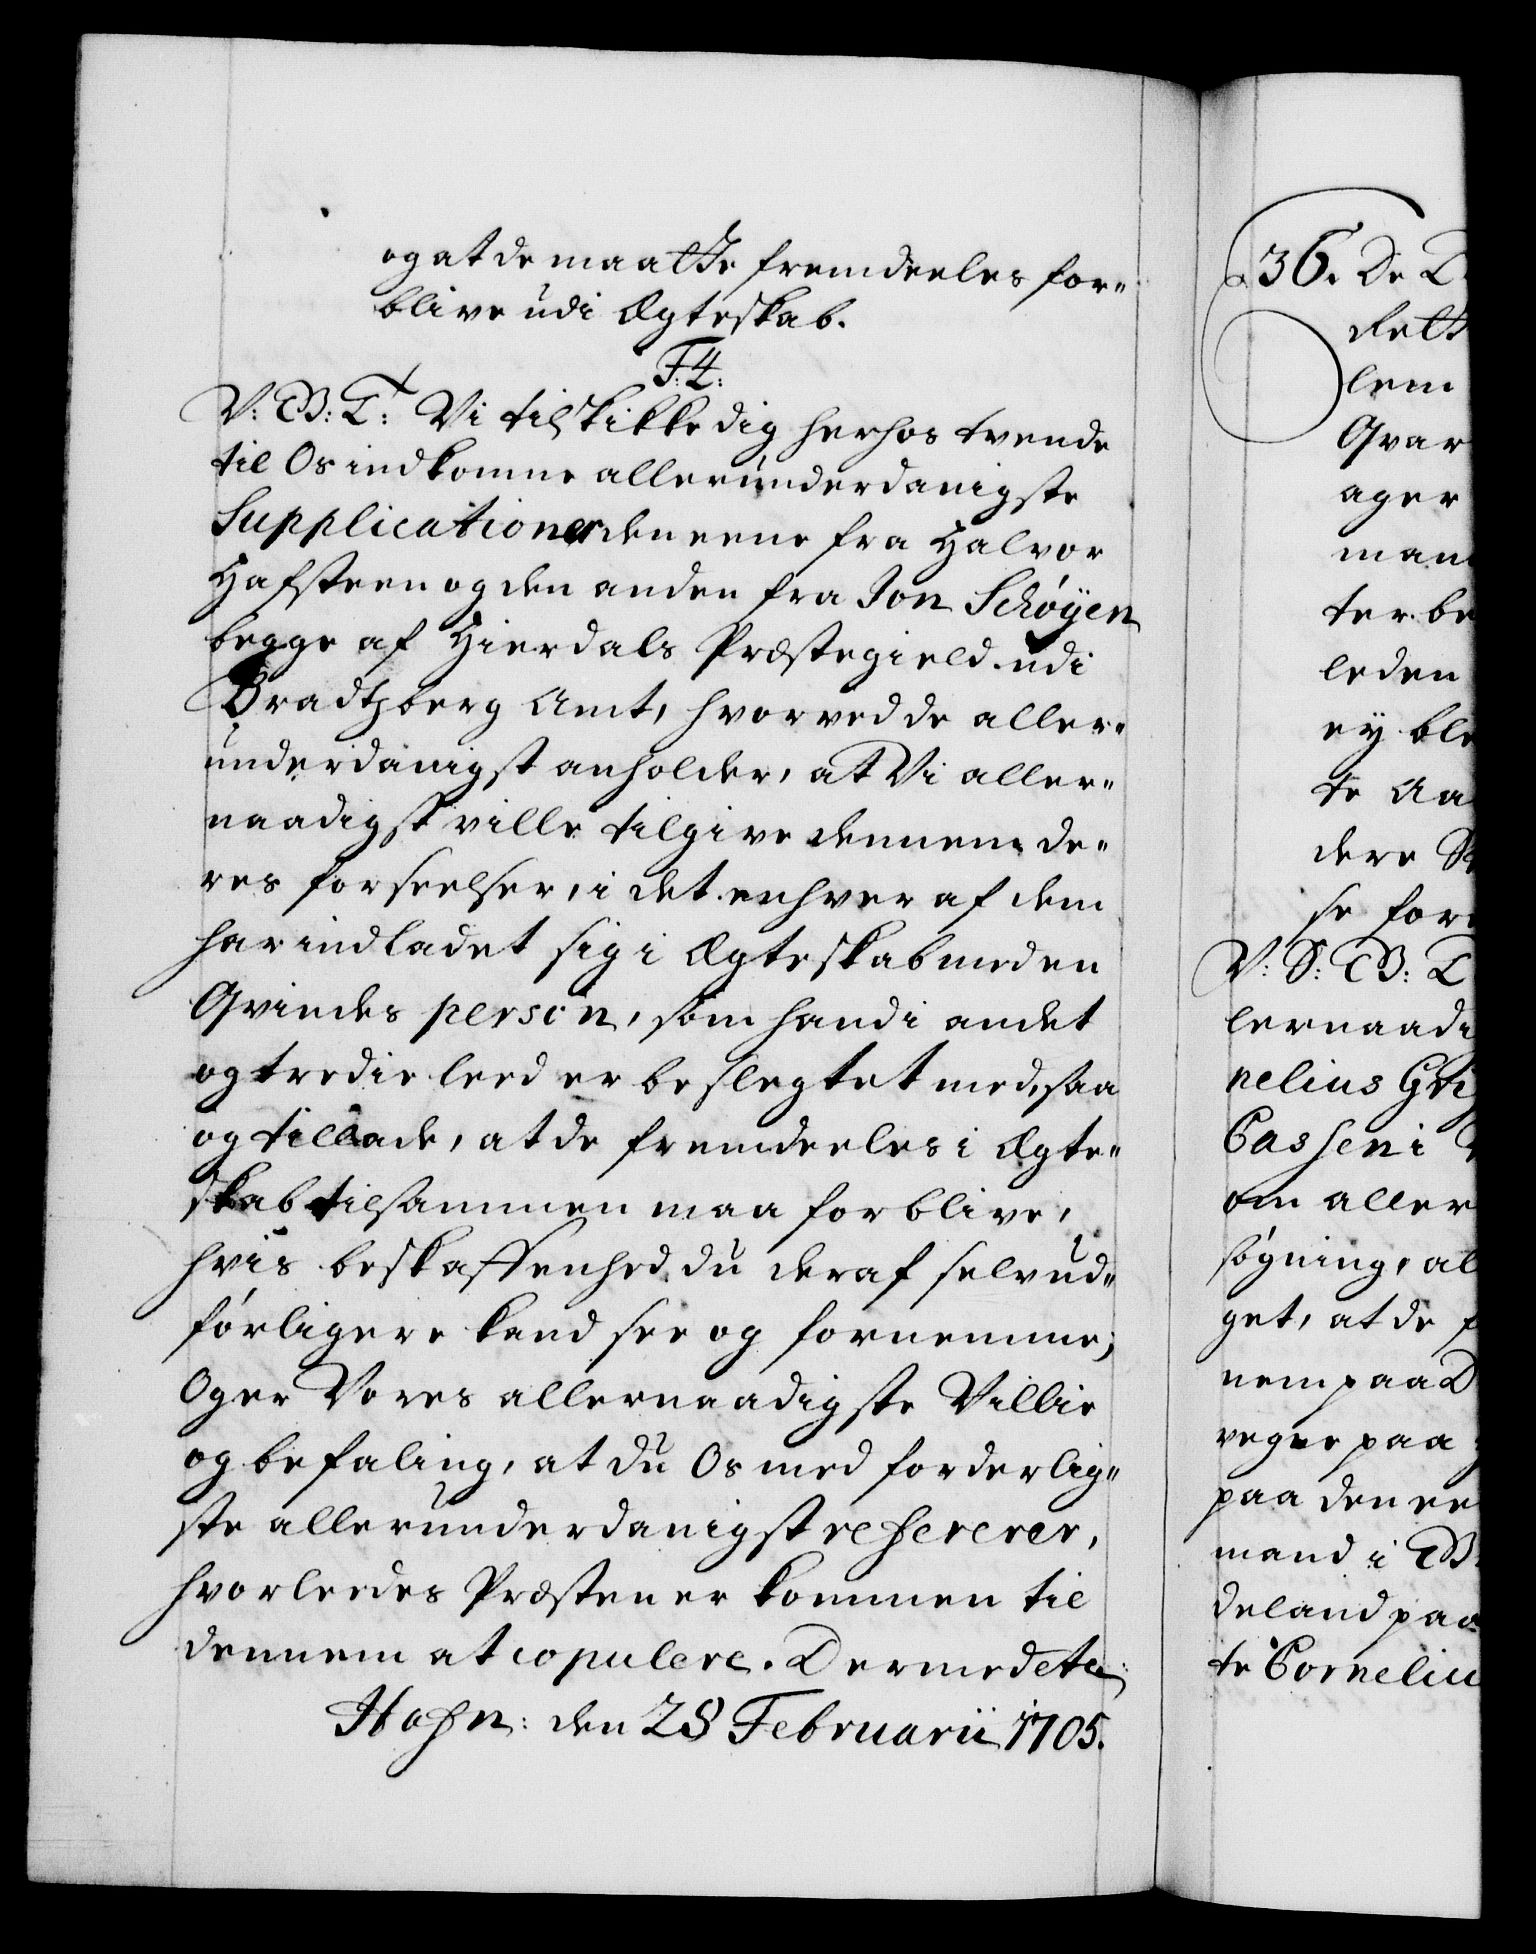 og at de maatte fremdeeles for„
blive udi Ægteskab.
F: 4:
V: G: T: Vi tilskikke dig herhos tvende
til Os indkomne allerunderdanigste
Supplicationer den eene fra Halvor
Hafsteen og den anden fra Jon Schøyen
begge af Hierdals Præstegield udi
Bradtzberg Amt, hvorved de aller„
underdanigst anholder, at Vi aller„
naadigst ville tilgive dennem de„
res forseelser, i det enhver af dem
har indladet sig i Ægteskab med en
Qvindes person, som hand i andet
og tredie leed er beslegtet med, saa
og tillade, at de fremdeeles i Ægte„
skab tilsammen maa forblive,
hvis beskaffenhed du deraf selv ud„
førligere kand see og fornemme;
Og er Vores allernaadigste Villie
og befaling, at du Os med forderlig„
ste allerunderdanigst refererer,
hvorleedes Præsten er kommen til
dennem at copulere. Dermed etc:
Hafn: den 28 Februarii 1705.
36. De
lem
Qvar
ager
man
ter be
leden
ey ble
te Aa
dere
se for
V: S: G: T
lernaadi
nelius
Cassen i
om aller
søgning, al
get, at de
nem paa D
vegne paa
paa den ee
mand i
deland paa
te Corneliu